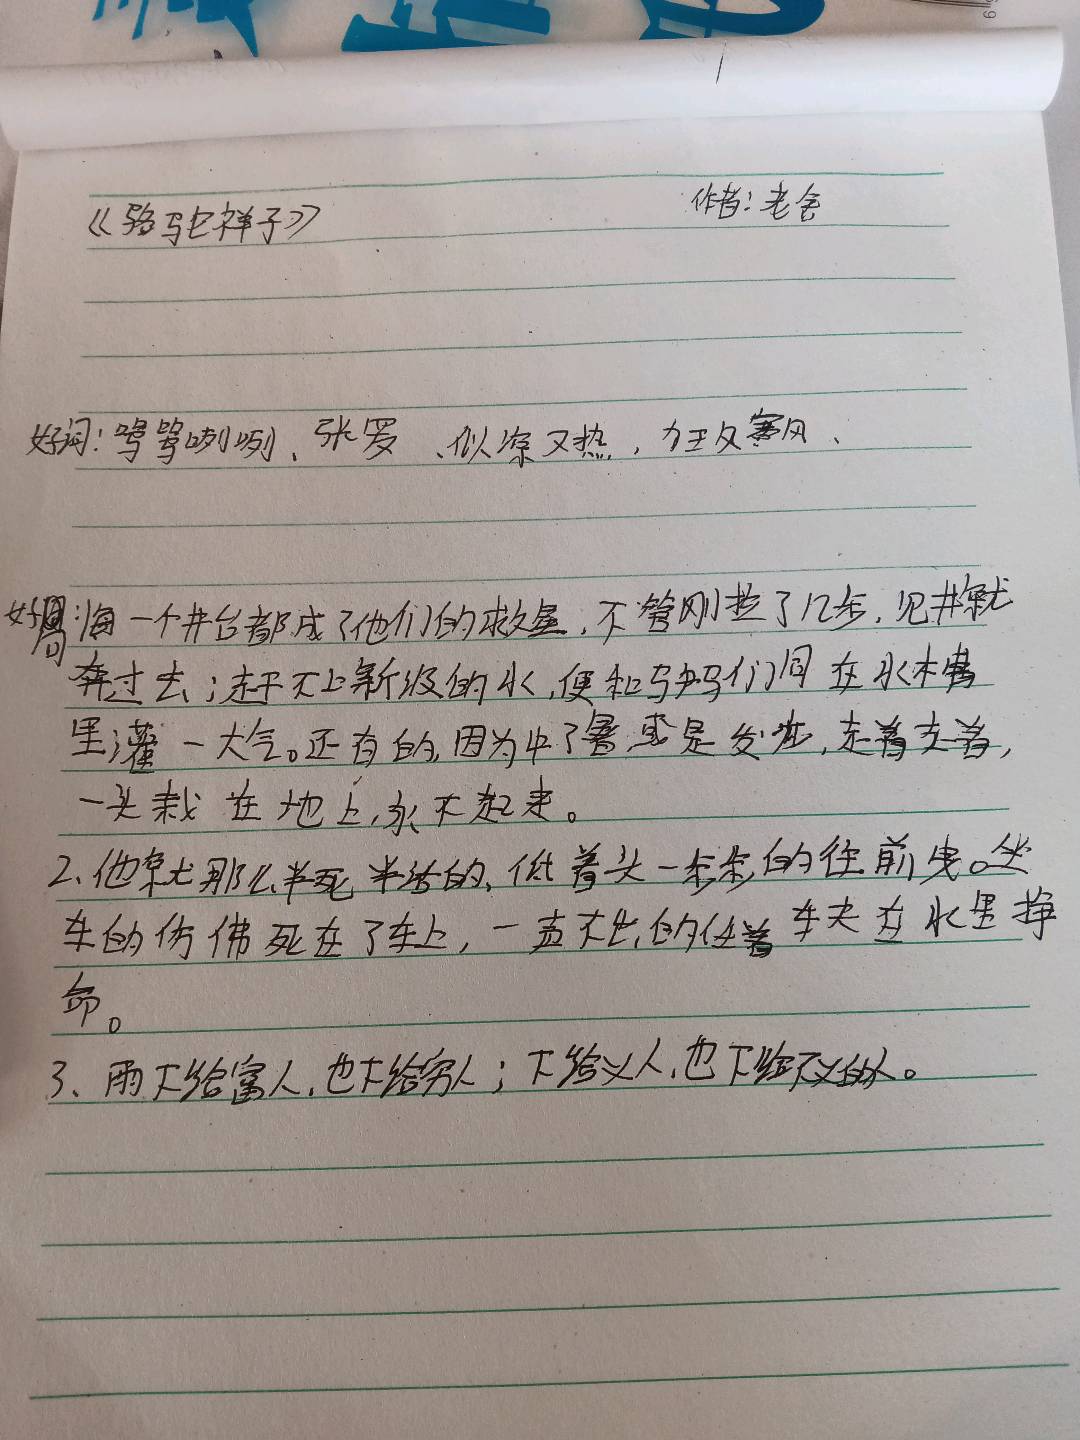 《骆驼祥子》 作者:老舍
好词:骂骂咧咧、张罗、似凉又热,狂风
好词:海一个井台都成了他们的救星,不管刚拉了几步,见井就
奔过去;赶不上新汲的水,便和驴马们同在水木曹
里灌一大气。还有的,因为中了暑或是发痧,走着走着,
一头栽在地上,永不起来。
2、他就那么半死半活的,低着头一步步的往前曳。坐
车的仿佛死在了车上,一声不出的任着车夫在水里挣
命。
3、雨下给富人,也下给穷人;下给义人,也下给不义的人。